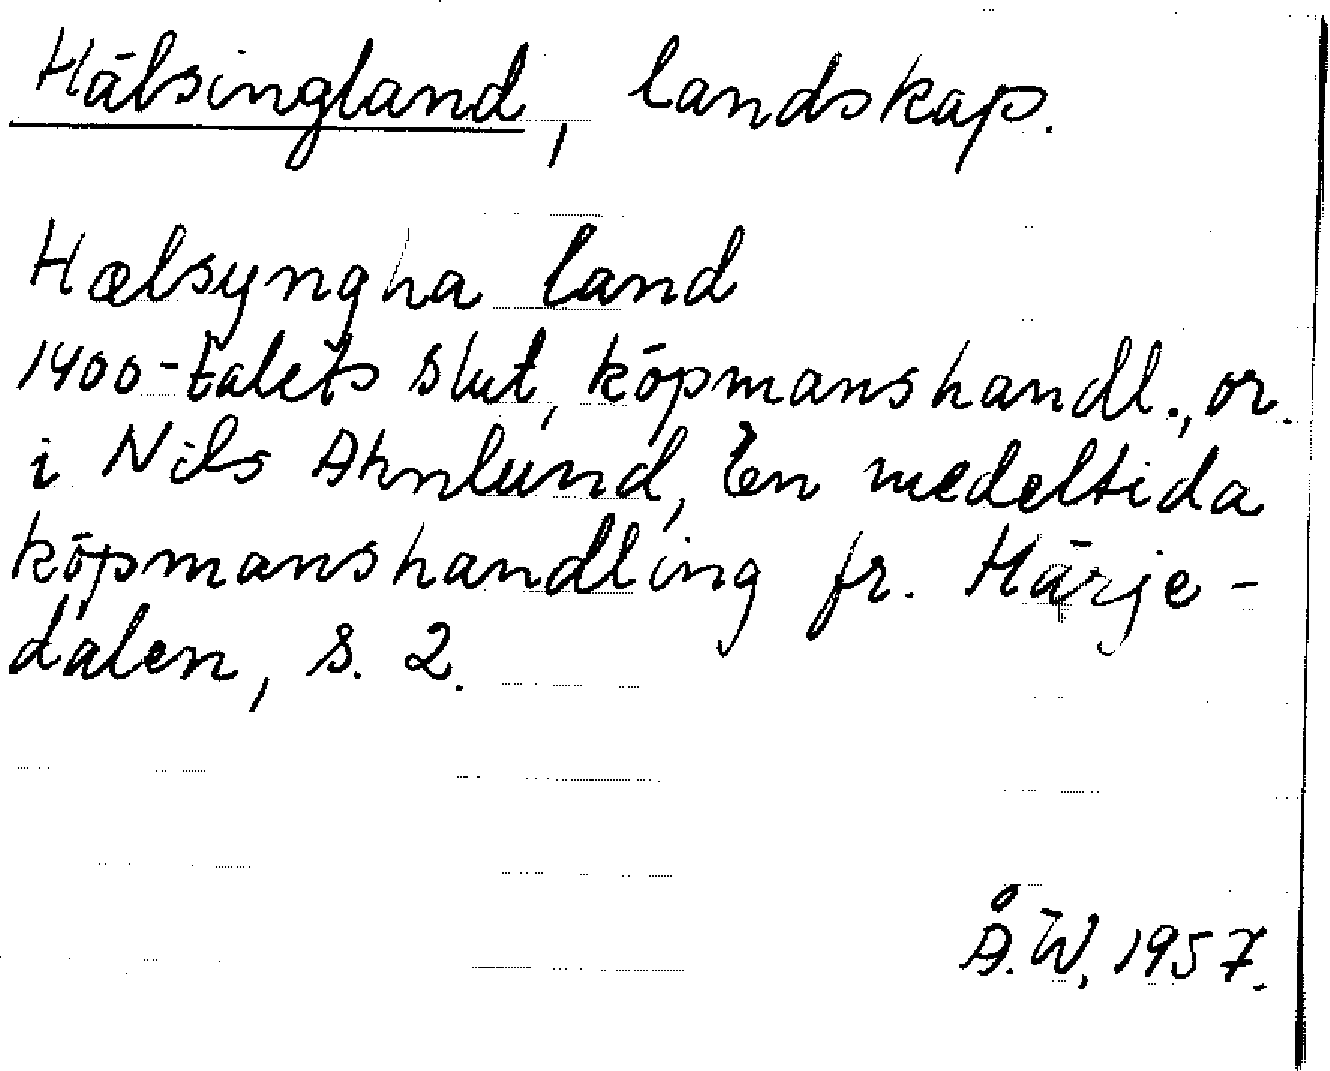 Hälsingland, landskap.
Hælsyngha land
1400-talets slut, köpmanshandl., or.
i Nils Ahnlund, En medeltida
köpmanshandling fr. Härje-
dalen, s. 2.
Å.W, 1957.